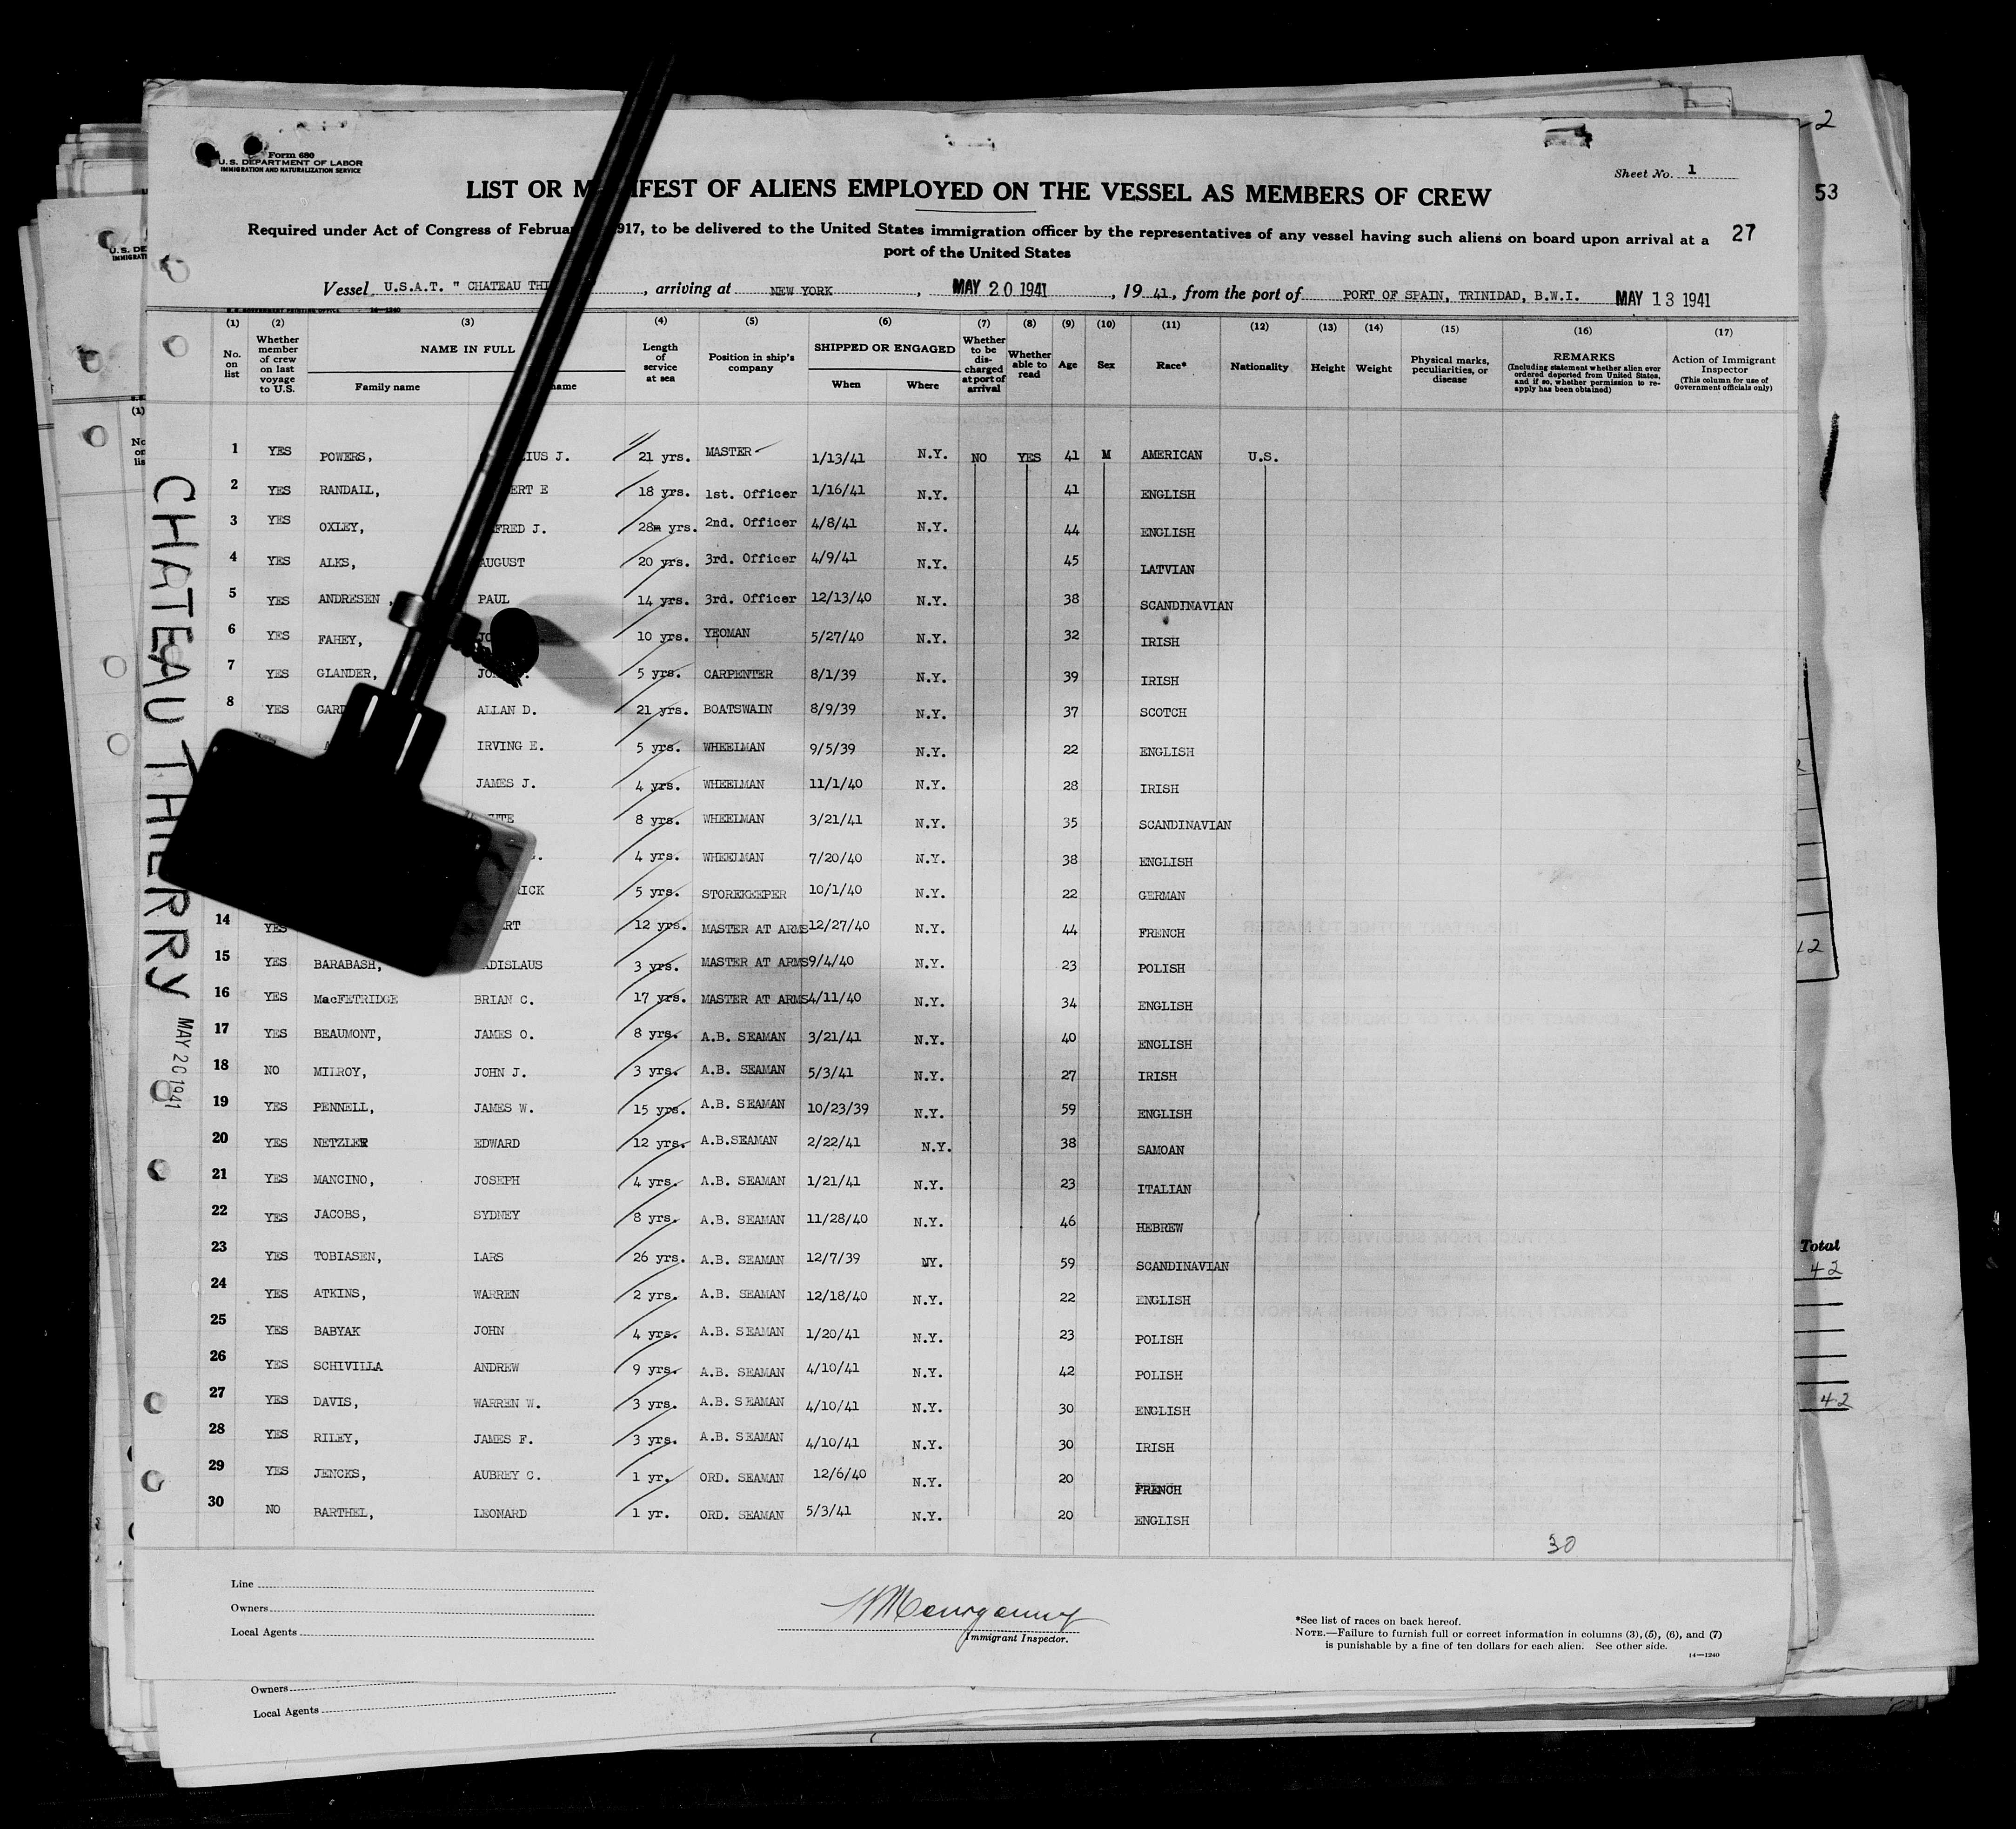 2
Form 680
U.S. DEPARTMENT OF LABOR
IMMIGRATION AND NATURALIZATION SERVICE
Sheet No. 1
53
LIST OR M IFEST OF ALIENS EMPLOYED ON THE VESSEL AS MEMBERS OF CREW
Required under Act of Congress of Februar 917, to be delivered to the United States immigration officer by the representatives of any vessel having such aliens on board upon arrival at a
port of the United States
27
Vessel U.S.A.T. " CHATEAU THI , arriving at NEW YORK , MAY 20 1941 , 19 41, from the port of PORT OF SPAIN, TRINIDAD, B.W.I. MAY 13 1941
(1) (2) (3) (4) (5) (6) (7) (8) (9) (10) (11) (12) (13) (14) (15) (16) (17)
No. on list
Whether member of crew on last voyage to U.S.
NAME IN FULL
Family name
name
Length of service at sea
Position in ship's company
SHIPPED OR ENGAGED
When
Where
Whether to be discharged at port of arrival
Whether able to read
Age
Sex
Race*
Nationality
Height
Weight
Physical marks, peculiarities, or disease
REMARKS
(Including statement whether alien ever ordered deported from United States, and if so, whether permission to reapply has been obtained)
Action of Immigrant Inspector
(This column for use of Government officials only)
1 YES POWERS, IUS J. 21 yrs. MASTER 1/13/41 N.Y. NO YES 41 M AMERICAN U.S.
2 YES RANDALL, ERT E 18 yrs. 1st. Officer 1/16/41 N.Y. 41 ENGLISH
3 YES OXLEY, FRED J. 28 yrs. 2nd. Officer 4/8/41 N.Y. 44 ENGLISH
4 YES ALKS, AUGUST 20 yrs. 3rd. Officer 4/9/41 N.Y. 45 LATVIAN
5 YES ANDRESEN, PAUL 14 yrs. 3rd. Officer 12/13/40 N.Y. 38 SCANDINAVIAN
6 YES FAHEY, 10 yrs. YEOMAN 5/27/40 N.Y. 32 IRISH
7 YES GLANDER, 5 yrs. CARPENTER 8/1/39 N.Y. 39 IRISH
8 YES GARD ALLAN D. 21 yrs. BOATSWAIN 8/9/39 N.Y. 37 SCOTCH
IRVING E. 5 yrs. WHEELMAN 9/5/39 N.Y. 22 ENGLISH
JAMES J. 4 yrs. WHEELMAN 11/1/40 N.Y. 28 IRISH
8 yrs. WHEELMAN 3/21/41 N.Y. 35 SCANDINAVIAN
4 yrs. WHEELMAN 7/20/40 N.Y. 38 ENGLISH
RICK 5 yrs. STOREKEEPER 10/1/40 N.Y. 22 GERMAN
14 YES RT 12 yrs. MASTER AT ARMS 12/27/40 N.Y. 44 FRENCH
15 YES BARABASH, ADISLAUS 3 yrs. MASTER AT ARMS 9/4/40 N.Y. 23 POLISH
16 YES MacFETRIDGE BRIAN C. 17 yrs. MASTER AT ARMS 4/11/40 N.Y. 34 ENGLISH
17 YES BEAUMONT, JAMES O. 8 yrs. A.B. SEAMAN 3/21/41 N.Y. 40 ENGLISH
18 NO MILROY, JOHN J. 3 yrs. A.B. SEAMAN 5/3/41 N.Y. 27 IRISH
19 YES PENNELL, JAMES W. 15 yrs. A.B. SEAMAN 10/23/39 N.Y. 59 ENGLISH
20 YES NETZLER EDWARD 12 yrs. A.B.SEAMAN 2/22/41 N.Y. 38 SAMOAN
21 YES MANCINO, JOSEPH 4 yrs. A.B. SEAMAN 1/21/41 N.Y. 23 ITALIAN
22 YES JACOBS, SYDNEY 8 yrs. A.B. SEAMAN 11/28/40 N.Y. 46 HEBREW
23 YES TOBIASEN, LARS 26 yrs. A.B. SEAMAN 12/7/39 NY. 59 SCANDINAVIAN
24 YES ATKINS, WARREN 2 yrs. A.B. SEAMAN 12/18/40 N.Y. 22 ENGLISH
25 YES BABYAK JOHN 4 yrs. A.B. SEAMAN 1/20/41 N.Y. 23 POLISH
26 YES SCHIVILLA ANDREW 9 yrs. A.B. SEAMAN 4/10/41 N.Y. 42 POLISH
27 YES DAVIS, WARREN W. 3 yrs. A.B. SEAMAN 4/10/41 N.Y. 30 ENGLISH
28 YES RILEY, JAMES F. 3 yrs. A.B. SEAMAN 4/10/41 N.Y. 30 IRISH
29 YES JENCKS, AUBREY C. 1 yr. ORD. SEAMAN 12/6/40 N.Y. 20 FRENCH
30 NO BARTHEL, LEONARD 1 yr. ORD. SEAMAN 5/3/41 N.Y. 20 ENGLISH
30
CHATEAU THIERRY MAY 20 1941
Total
42
42
Line
Owners
Local Agents
Immigrant Inspector.
*See list of races on back hereof.
NOTE.—Failure to furnish full or correct information in columns (3), (5), (6), and (7)
is punishable by a fine of ten dollars for each alien. See other side.
14—1240
Owners
Local Agents